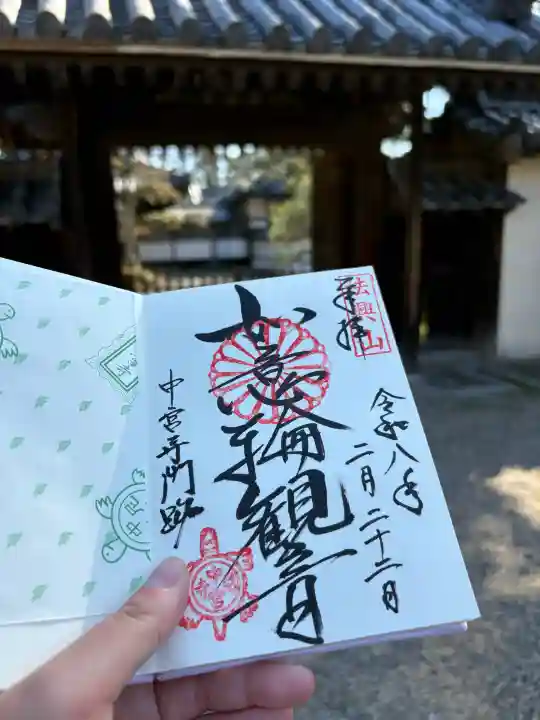 奉拝
法興山
令和八年
二月二十二日
如意輪観音
中宮寺門跡
中宮寺